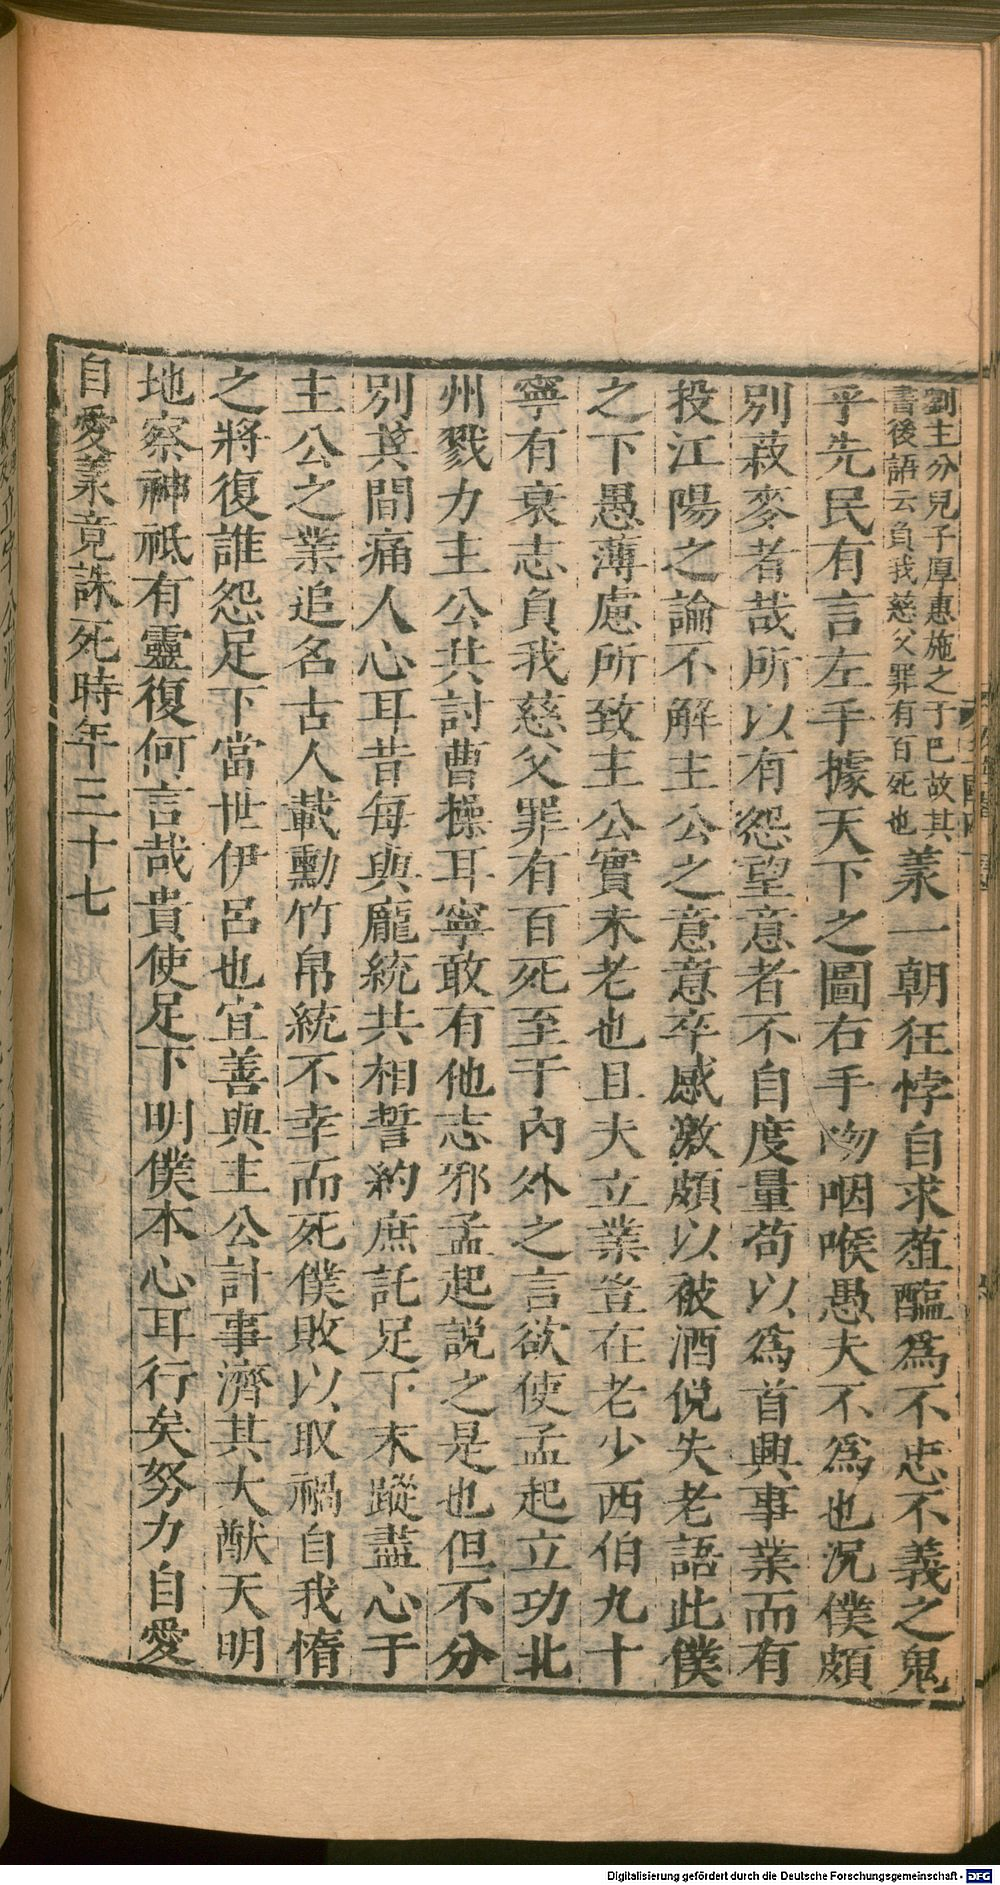 劉主分兒子厚惠施之于巴故其
書後語云負我慈父罪有百死也
羕一朝狂悖自求葅醢爲不忠不義之鬼
乎先民有言左手據天下之圖右手吻咽喉愚夫不爲也況僕頗
別菽麥者哉所以有怨望意者不自度量苟以爲首興事業而有
投江陽之論不解主公之意意卒感激頗以被酒侻失老語此僕
之下愚薄慮所致主公實未老也且夫立業豈在老少西伯九十
寧有衰志負我慈父罪有百死至于內外之言欲使孟起立功北
州戮力主公共討曹操耳寧敢有他志邪孟起說之是也但不分
別其間痛人心耳昔每與龐統共相誓約庶託足下末蹤盡心于
主公之業追名古人載勳竹帛統不幸而死僕敗以取禍自我惰
之將復誰怨足下當世伊呂也宜善與主公計事濟其大猷天明
地察神祇有靈復何言哉貴使足下明僕本心耳行矣努力自愛
自愛羕竟誅死時年三十七
Digitalisierung gefördert durch die Deutsche Forschungsgemeinschaft - DFG